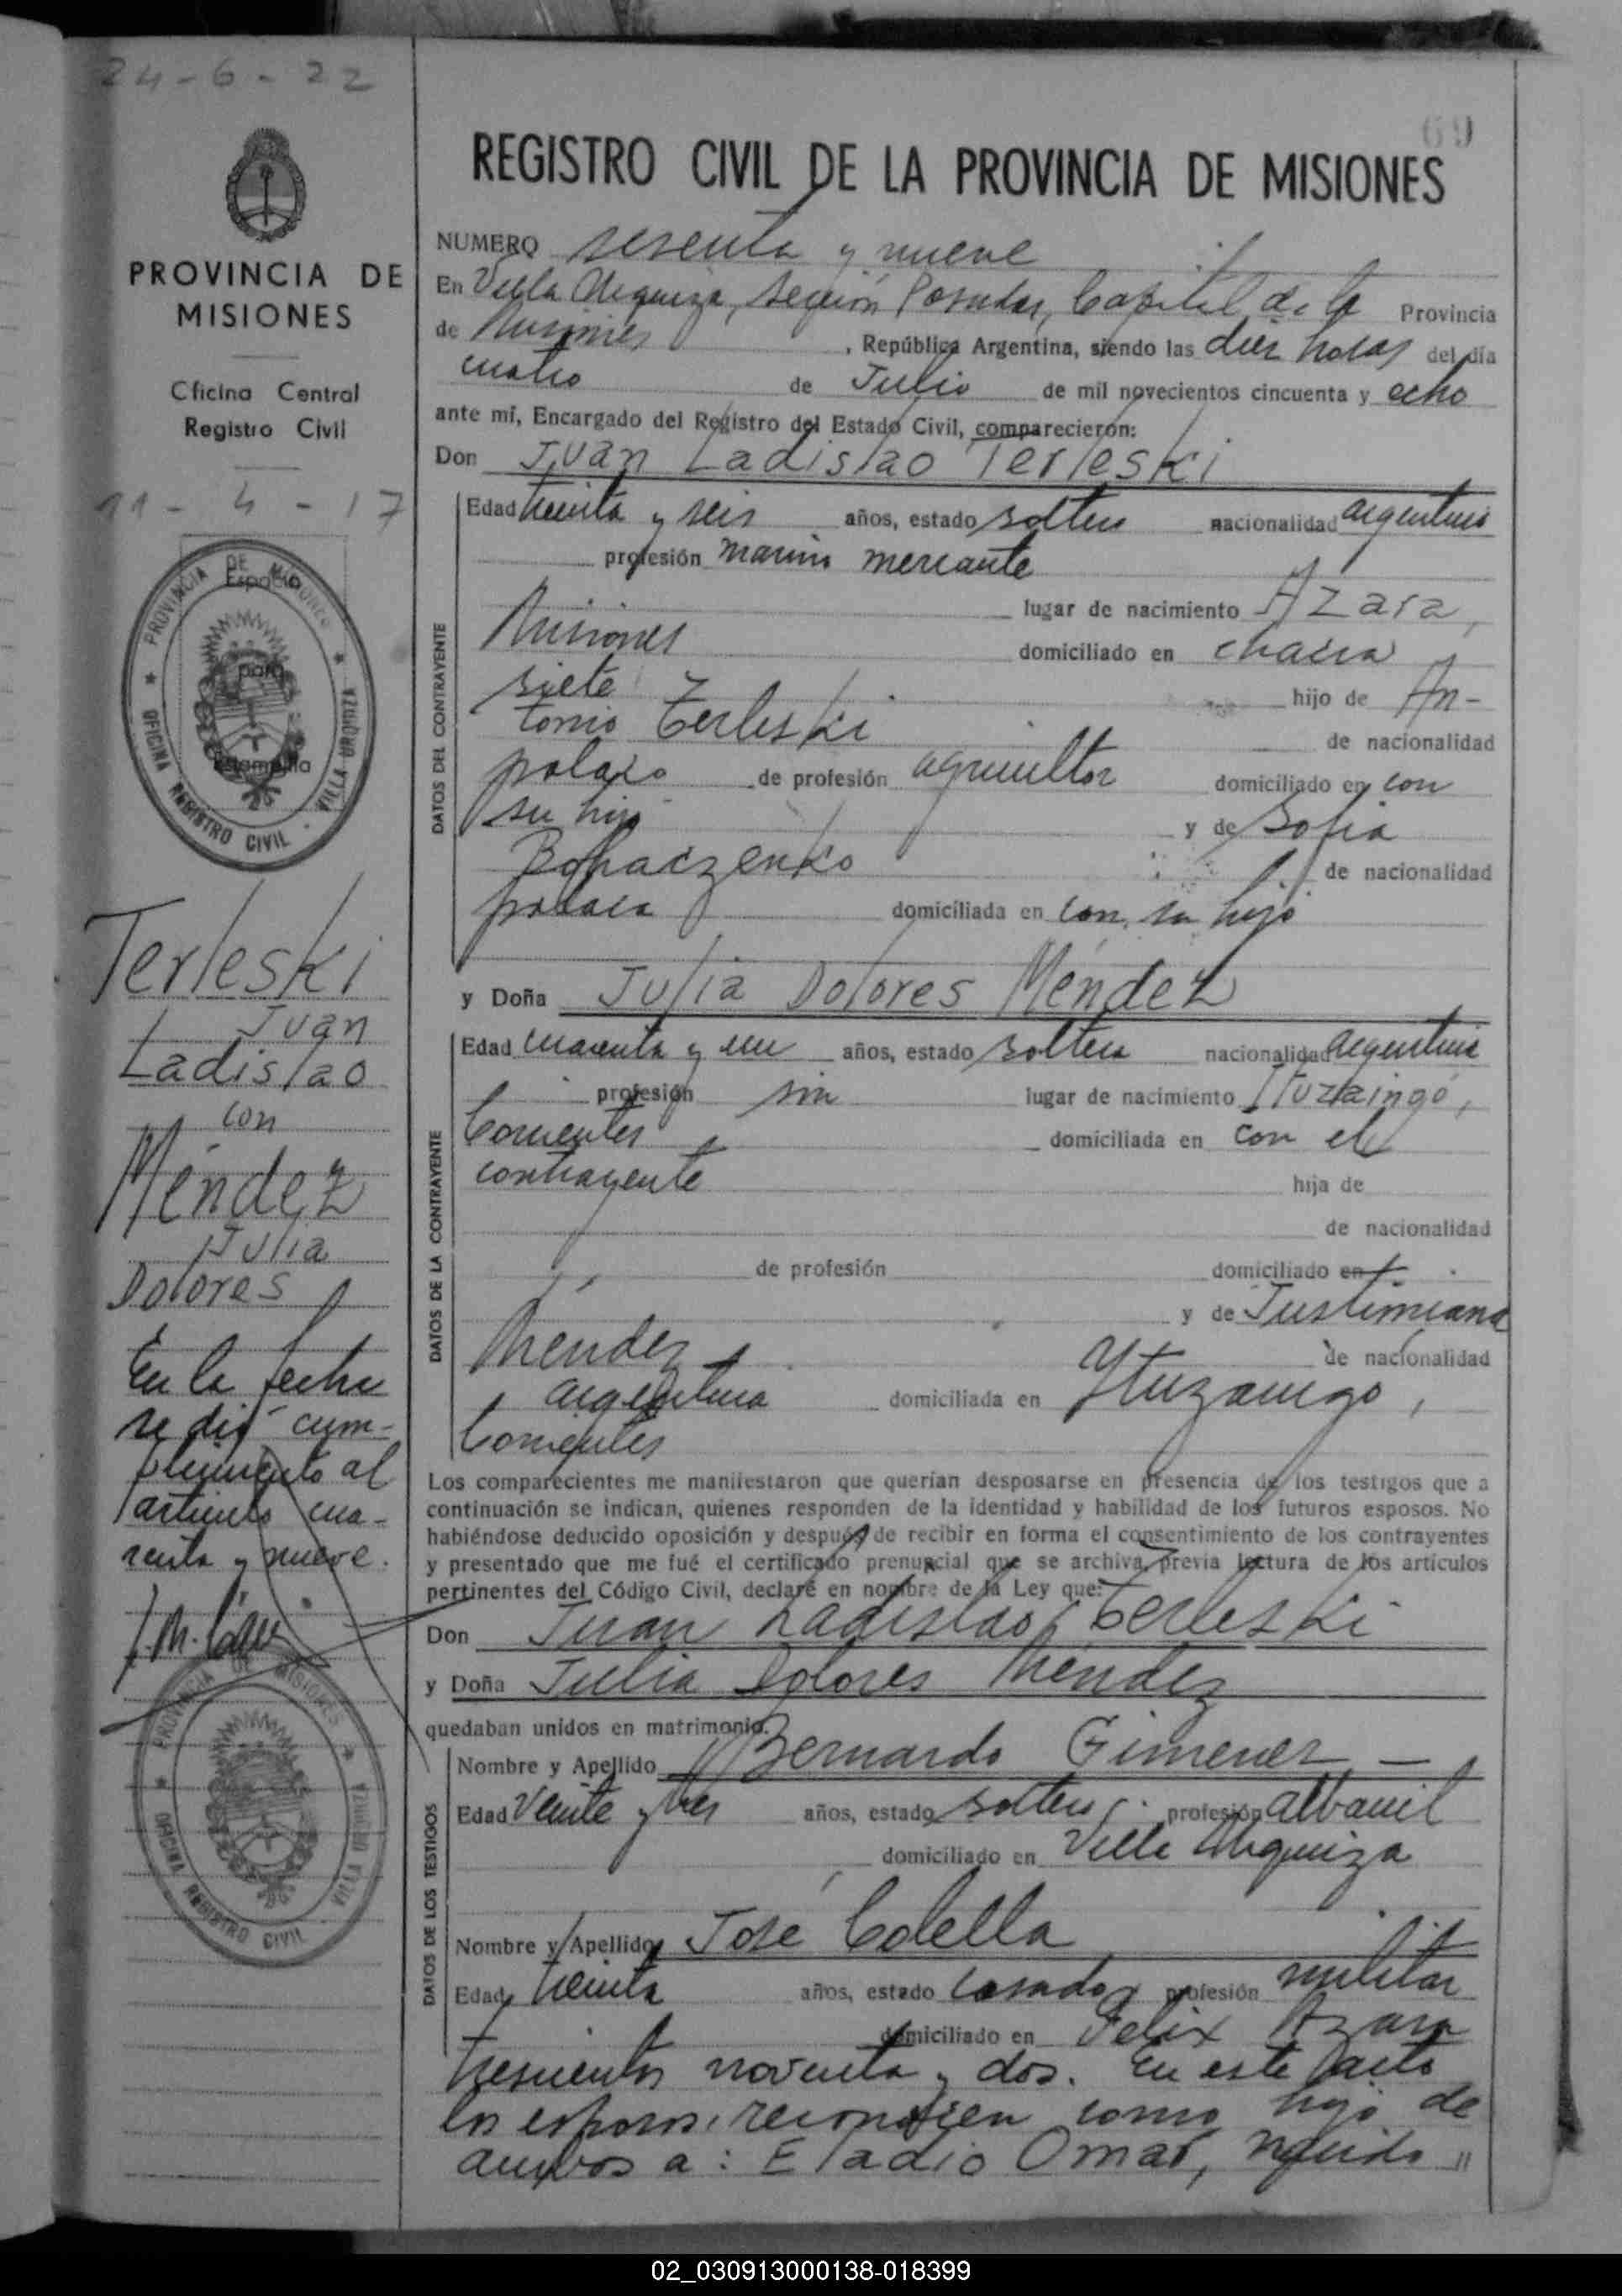 24-6-22
PROVINCIA DE
MISIONES
Oficina Central
Registro Civil
11-4-17
PROVINCIA DE MISIONES
OFICINA REGISTRO CIVIL - VILLA URQUIZA
Espacio
para
Estampilla
Terleski
Juan
Ladislao
con
Méndez
Julia
Dolores
En la fecha
se dió cum-
plimiento al
artículo cua-
renta y nueve.
PROVINCIA DE MISIONES
OFICINA REGISTRO CIVIL VILLA URQUIZA
69
REGISTRO CIVIL DE LA PROVINCIA DE MISIONES
NUMERO sesenta y nueve
En Villa Urquiza, Sección Posadas, Capital de la Provincia
de Misiones, República Argentina, siendo las diez horas del día
cuatro de Julio de mil novecientos cincuenta y ocho
ante mí, Encargado del Registro del Estado Civil, comparecieron:
Don Juan Ladislao Terleski
DATOS DEL CONTRAYENTE
Edad treinta y seis años, estado soltero nacionalidad argentino
profesión marino mercante
lugar de nacimiento Azara,
Misiones domiciliado en chacra
siete hijo de An-
tonio Terleski de nacionalidad
polaco de profesión agricultor domiciliado en con
su hijo y de Sofia
Bohaczenko de nacionalidad
polaca domiciliada en con su hijo
y Doña Julia Dolores Méndez
DATOS DE LA CONTRAYENTE
Edad cuarenta y un años, estado soltera nacionalidad argentina
profesión sin lugar de nacimiento Ituzaingó,
Corrientes domiciliada en con el
contrayente hija de
de nacionalidad
de profesión domiciliado en
y de Justiniana
Méndez de nacionalidad
argentina domiciliada en Ytuzaingo,
Corrientes
Los comparecientes me manifestaron que querían desposarse en presencia de los testigos que a
continuación se indican, quienes responden de la identidad y habilidad de los futuros esposos. No
habiéndose deducido oposición y después de recibir en forma el consentimiento de los contrayentes
y presentado que me fué el certificado prenupcial que se archiva, previa lectura de los artículos
pertinentes del Código Civil, declaré en nombre de la Ley que:
Don Juan Ladislao Terleski
y Doña Julia Dolores Méndez
quedaban unidos en matrimonio.
DATOS DE LOS TESTIGOS
Nombre y Apellido Bernardo Gimenez
Edad veinte y tres años, estado soltero profesión albañil
domiciliado en Villa Urquiza
Nombre y Apellido José Colella
Edad treinta años, estado casado profesión militar
domiciliado en Felix Azara
trescientos noventa y dos. En este acto
los esposos reconocen como hijo de
ambos a: Eladio Omar, nacido "
02_030913000138-018399